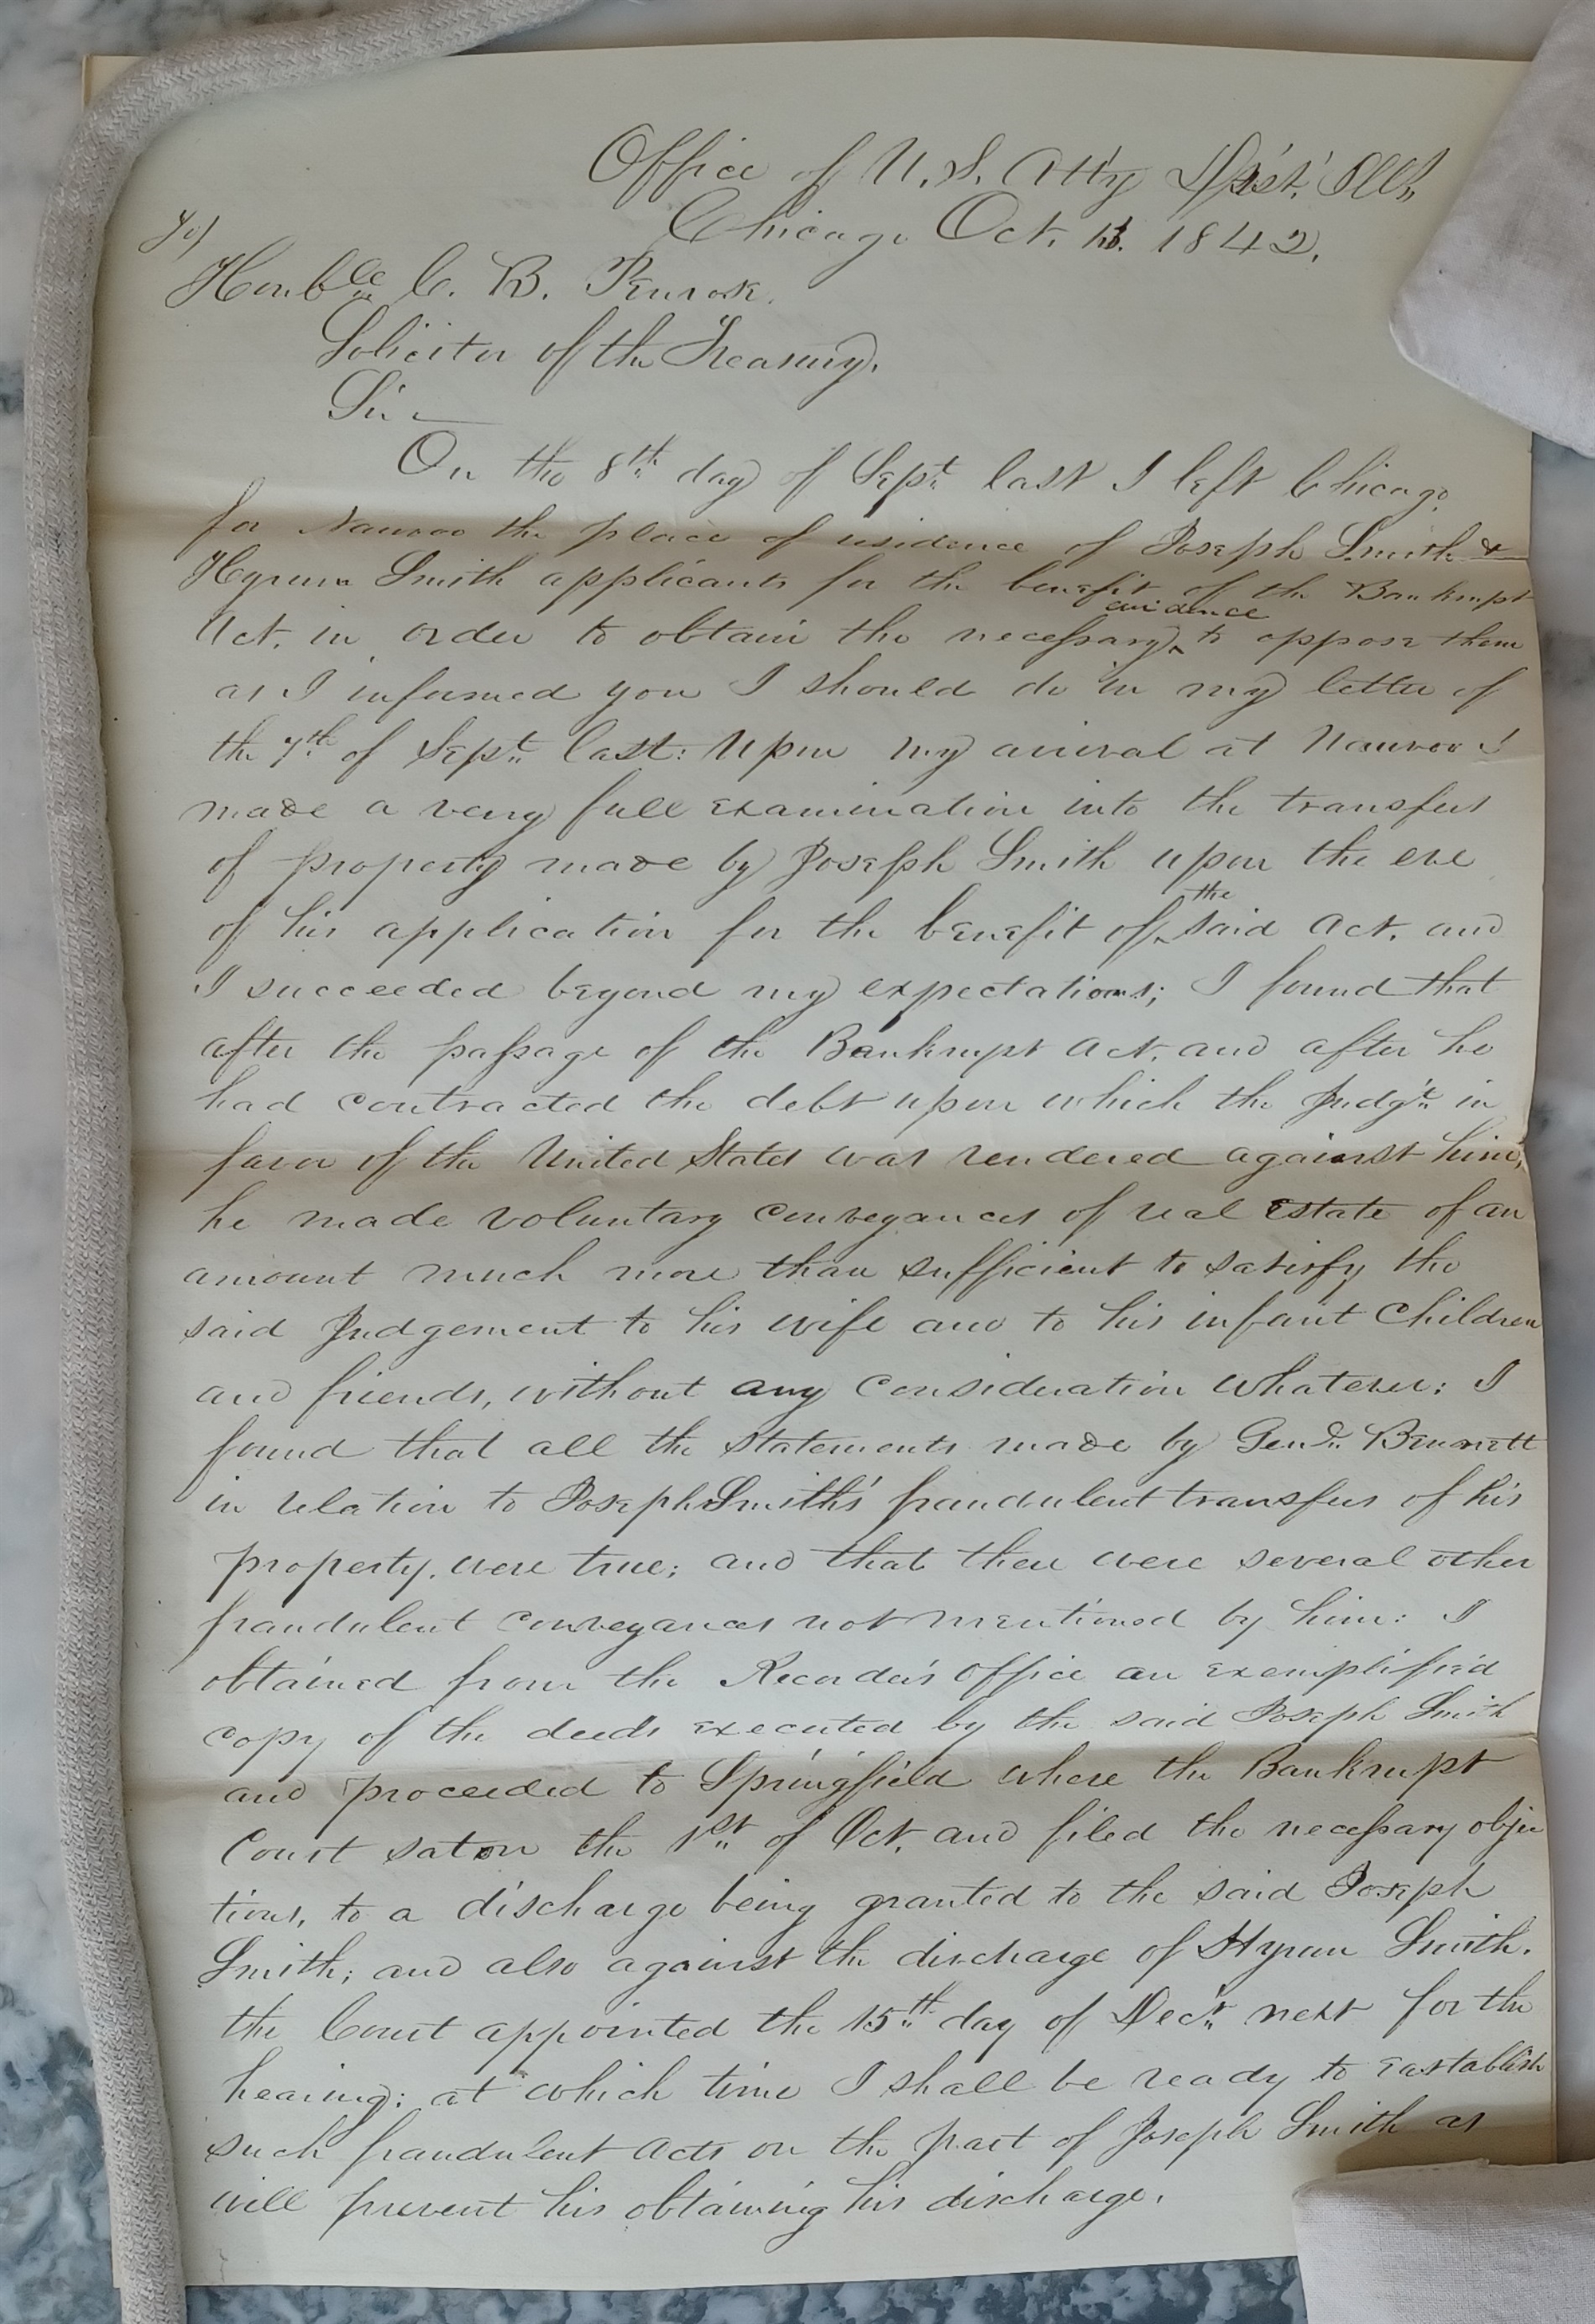 Office of U.S. Att'y Dist. Ills
Chicago Oct. 1842.
To)
Honble C. B. Penrose.
Solicitor of the Treasury.
Sir —
On the 8th day of Sept last I left Chicago
for Nauvoo the place of residence of Joseph Smith &
Hyrum Smith applicants for the benefit of the Bankrupt
evidence
Act. in order to obtain the necessary ‸ to oppose them
as I informed you I should do in my letter of
the 7th of Sept last: Upon my arrival at Nauvoo I
made a very full examination into the transfers
of property made by Joseph Smith upon the eve
the
of his application for the benefit of ‸ said Act. and
I succeeded beyond my expectations; I found that
after the passage of the Bankrupt Act. and after he
had contracted the debt upon which the Judgt in
favor of the United States was rendered against him,
he made voluntary conveyances of real Estate of an
amount much more than sufficient to satisfy the
said Judgement to his wife and to his infant Children
and friends, without any Consideration whatever: I
found that all the statements made by Genl Bennett
in relation to Joseph Smiths' fraudulent transfers of his
property, were true; and that there were several other
fraudulent Conveyances not mentioned by him: I
obtained from the Recorder's office an exemplified
copy of the deeds executed by the said Joseph Smith
and proceeded to Springfield where the Bankrupt
Court sat on the 1st of Oct. and filed the necessary objec
tions, to a discharge being granted to the said Joseph
Smith; and also against the discharge of Hyrum Smith.
the Court appointed the 15th day of Decr next for the
hearing: at which time I shall be ready to eastablish
such fraudulent acts on the part of Joseph Smith as
will prevent his obtaining his discharge.